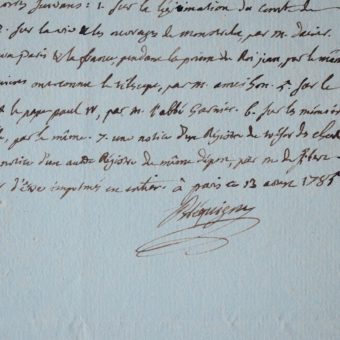 sur la légitimation du comte de
2. sur la vie & les ouvrages de monstrelet, par m. dacier.
paris & la france, pendant la prison du Roi jean, par le même
ont connu le télescope, par m. ameilhon. 5. sur le
le pape paul IV, par m. l'abbé Garnier. 6. sur les mémoires
par le même. 7. une notice d'un Registre du trésor des chartes
notice d'un autre Registre du même dépôt, par m. de
d'être imprimés en entier. à paris ce 13 1785
Bréquigny